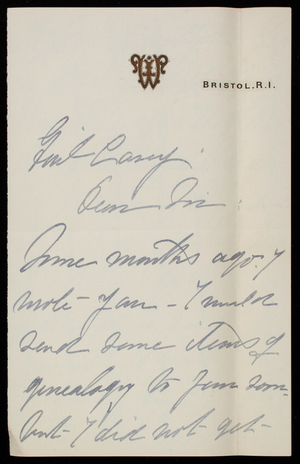 BRISTOL, R.I.
Genl Casey.
Dear Sir:
Some months ago I
wrote you - I would
send some items of
genealogy to you soon
but I did not get